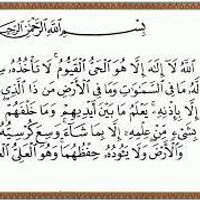 بِسْمِ اللَّهِ الرَّحْمَٰنِ الرَّحِيمِ
اللَّهُ لَا إِلَٰهَ إِلَّا هُوَ الْحَيُّ الْقَيُّومُ ۚ لَا تَأْخُذُهُ
لَّهُ مَا فِي السَّمَٰوَٰتِ وَمَا فِي الْأَرْضِ مَن ذَا الَّذِي
إِلَّا بِإِذْنِهِ ۚ يَعْلَمُ مَا بَيْنَ أَيْدِيهِمْ وَمَا خَلْفَهُمْ
بِشَيْءٍ مِّنْ عِلْمِهِ إِلَّا بِمَا شَاءَ ۚ وَسِعَ كُرْسِيُّهُ
وَالْأَرْضَ وَلَا يَئُودُهُ حِفْظُهُمَا ۚ وَهُوَ الْعَلِيُّ